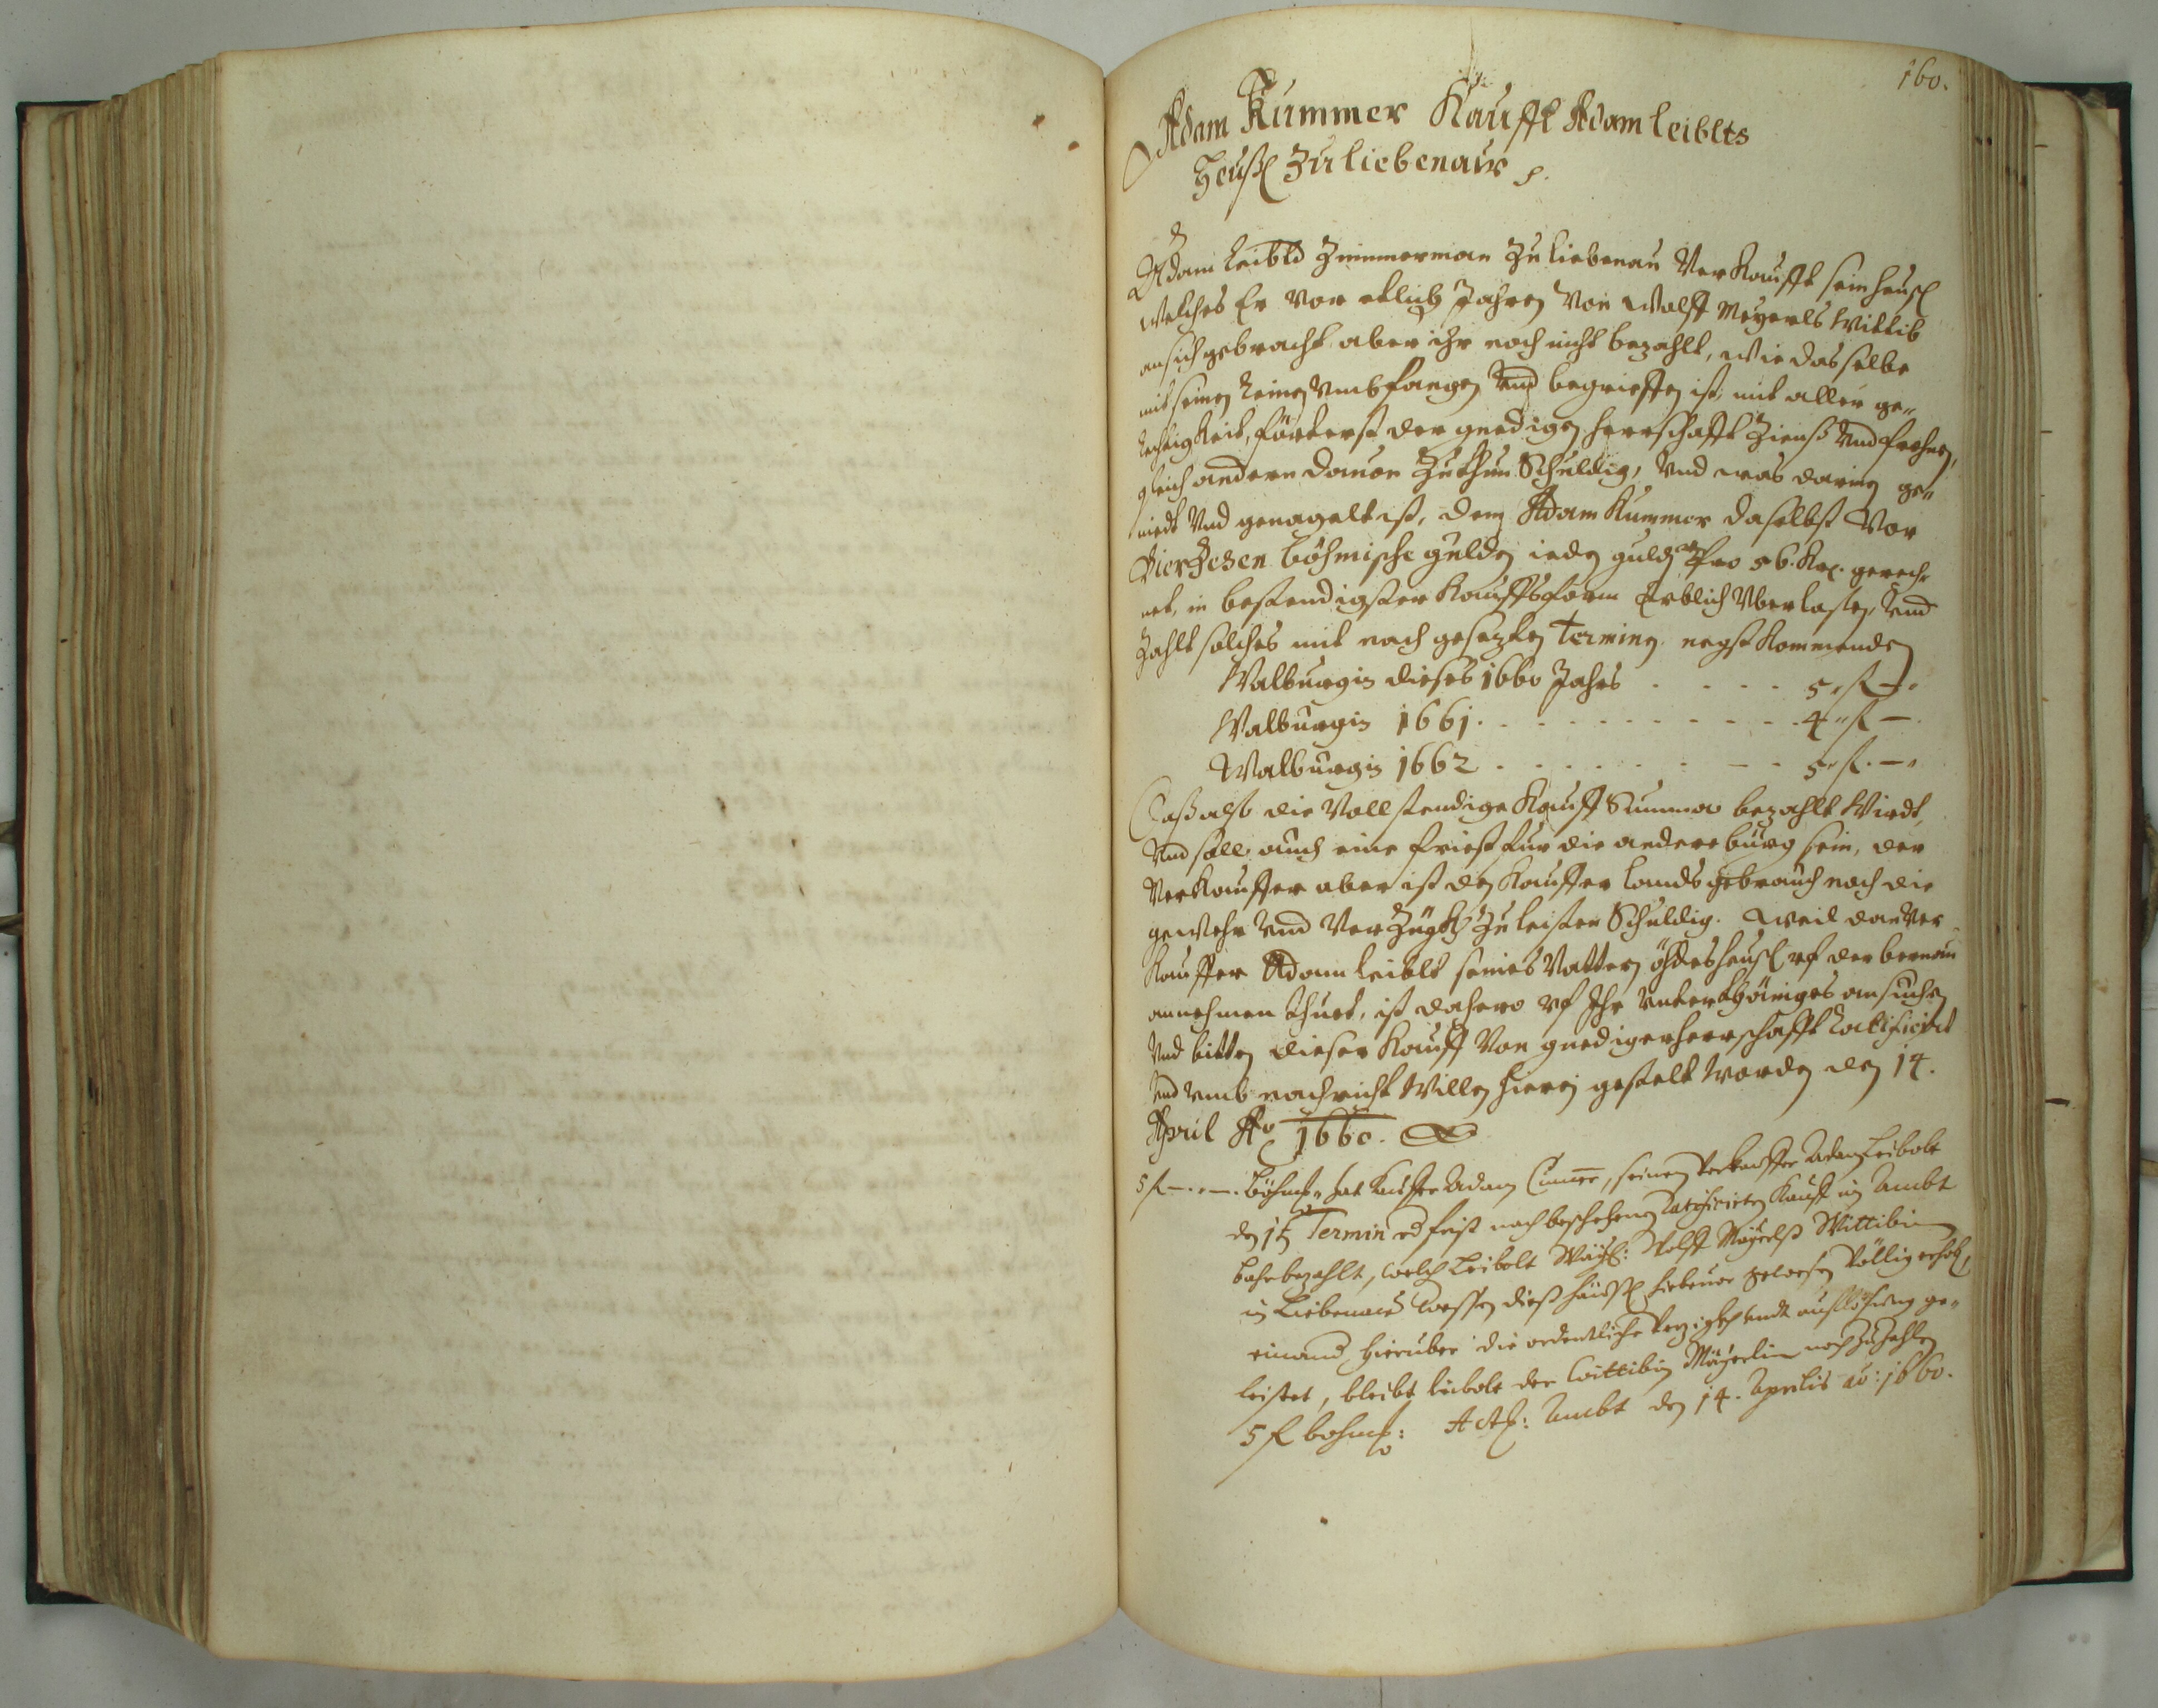 160.
Adam Kummer Kaufft Adam leiblts
Heußl Zu liebenau
Adam Leibld Zimmerman Zu liebenau Verkaufft sein heusl
welches Er vor etlich Jahren Von Wolff Meyerls Wittib
an sich gebracht aber ihr noch nicht bezahlt, wie dasselbe
mit seinen Reinen Vmbfangen Vnd begrieffen ist, mit aller ge„
rechtigkeit, förderst der gnedigen herrschafft Zienß Vnd frohnen,
gleich andern dauon Zuthun Schuldig, Vnd was darinn ge„
niedt Vnd genagelt ist, dem Adam Kummer daselbst Vor
Vierzehen böhmische gulden ieden gulden Pro 56. Krl. gerech„
net, in bestendigster Kauffsform Erblich Vberlasten, Vnd
Zahlt solches mit nach gesezten Terminen negst Kommenden
Walburgis dieses 1660 Jahrs . . . . 5 „ fl —„
Walburgis 1661 . . . . . . . . . . 4 „ fl —.
Walburgis 1662 . . . . . . . — — 5 „ fl. —„
Daß also die Vollstendige Kauff Summa bezahlt Wirdt,
Vnd soll auch eine friest fur die andere bürg sein, der
Verkauffer aber ist den Kauffer landsgebrauch nach die
gewehr Vnd Verzügkh Zu leisten Schuldig. Weil dan Ver„
kauffer Adam leiblt seines Vatters ödes heusl vf der
annehmen thuet, ist dahero vf Ihr Vnterthäniges ansuchen
Vnd bitten dieser Kauff Von gnediger herrschafft Ratificirt
Vnd vmb nachricht Willen hierein gestelt worden den 14.
April Ao 1660.
5 fl —.„—. Böhmß. hat Kauffer Adam Cummer, seinen Verkauffer Adam Leibolt
den 1t Termin od frist nach beschehenen Ratificirten Kauff im Ambt
bahr bezahlt, welch Leibolt Wolff Mayerlß Wittibin
in Liebenau wessen dieß häußl hiebeuor gewesen Völlig
einand hierüber die ordentliche Verzigkh vndt außlößung ge„
leistet, bleibt leibolt der Wittibin Mayerlin noch zu zahlen
5 fl böhmß: Act: Ambt den 14. Aprilis ao: 1660.